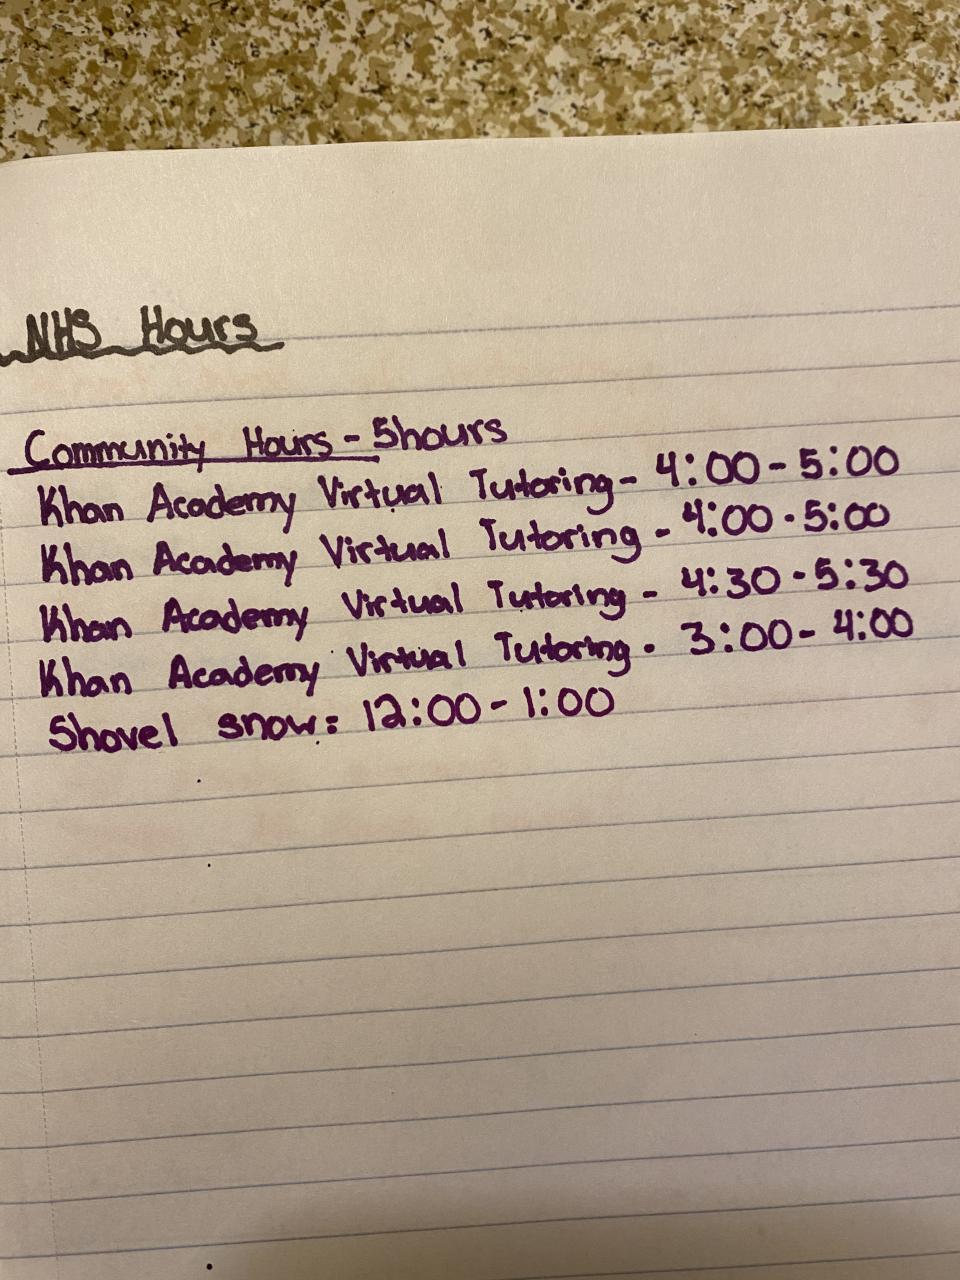 NHS Hours
Community Hours - 5hours
Khan Academy Virtual Tutoring - 4:00 - 5:00
Khan Academy Virtual Tutoring - 4:00 - 5:00
Khan Academy Virtual Tutoring - 4:30 - 5:30
Khan Academy Virtual Tutoring - 3:00 - 4:00
Shovel snow: 12:00 - 1:00